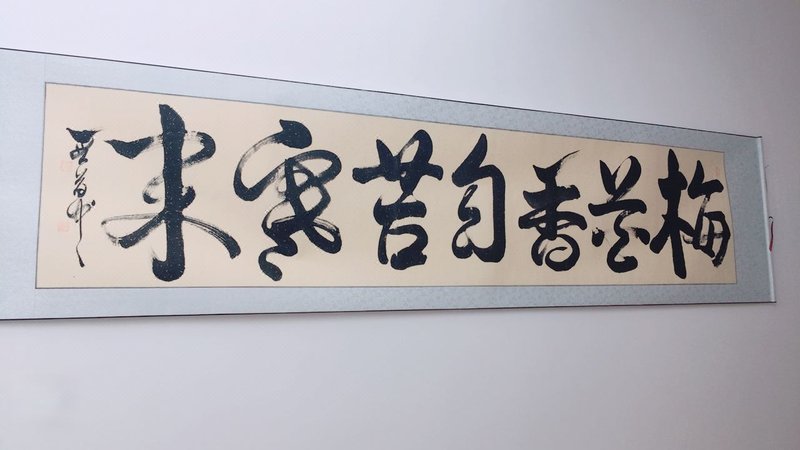 梅花香自苦寒来